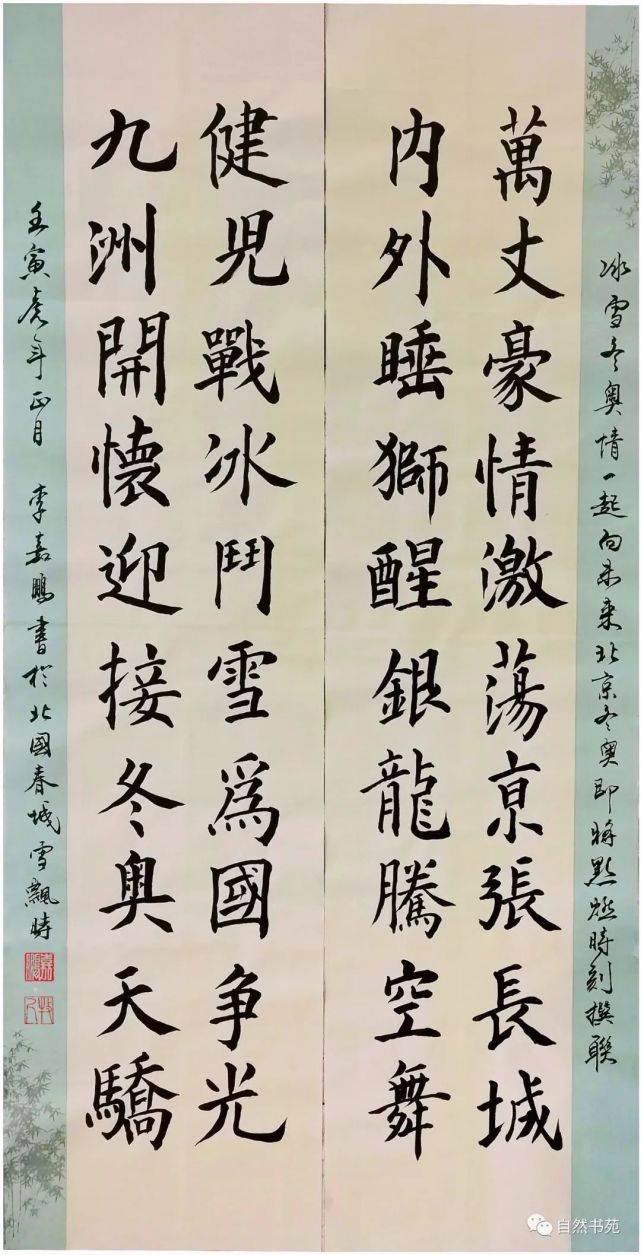 冰雪冬奥情一起向未来北京冬奥即將點燃時刻撰聯
萬丈豪情激蕩京張長城
内外睡獅醒銀龍騰空舞
健兒戰冰鬥雪爲國争光
九洲開懷迎接冬奥天驕
壬寅虎年正月 李嘉鵬書於北國春城雪飄時
自然书苑